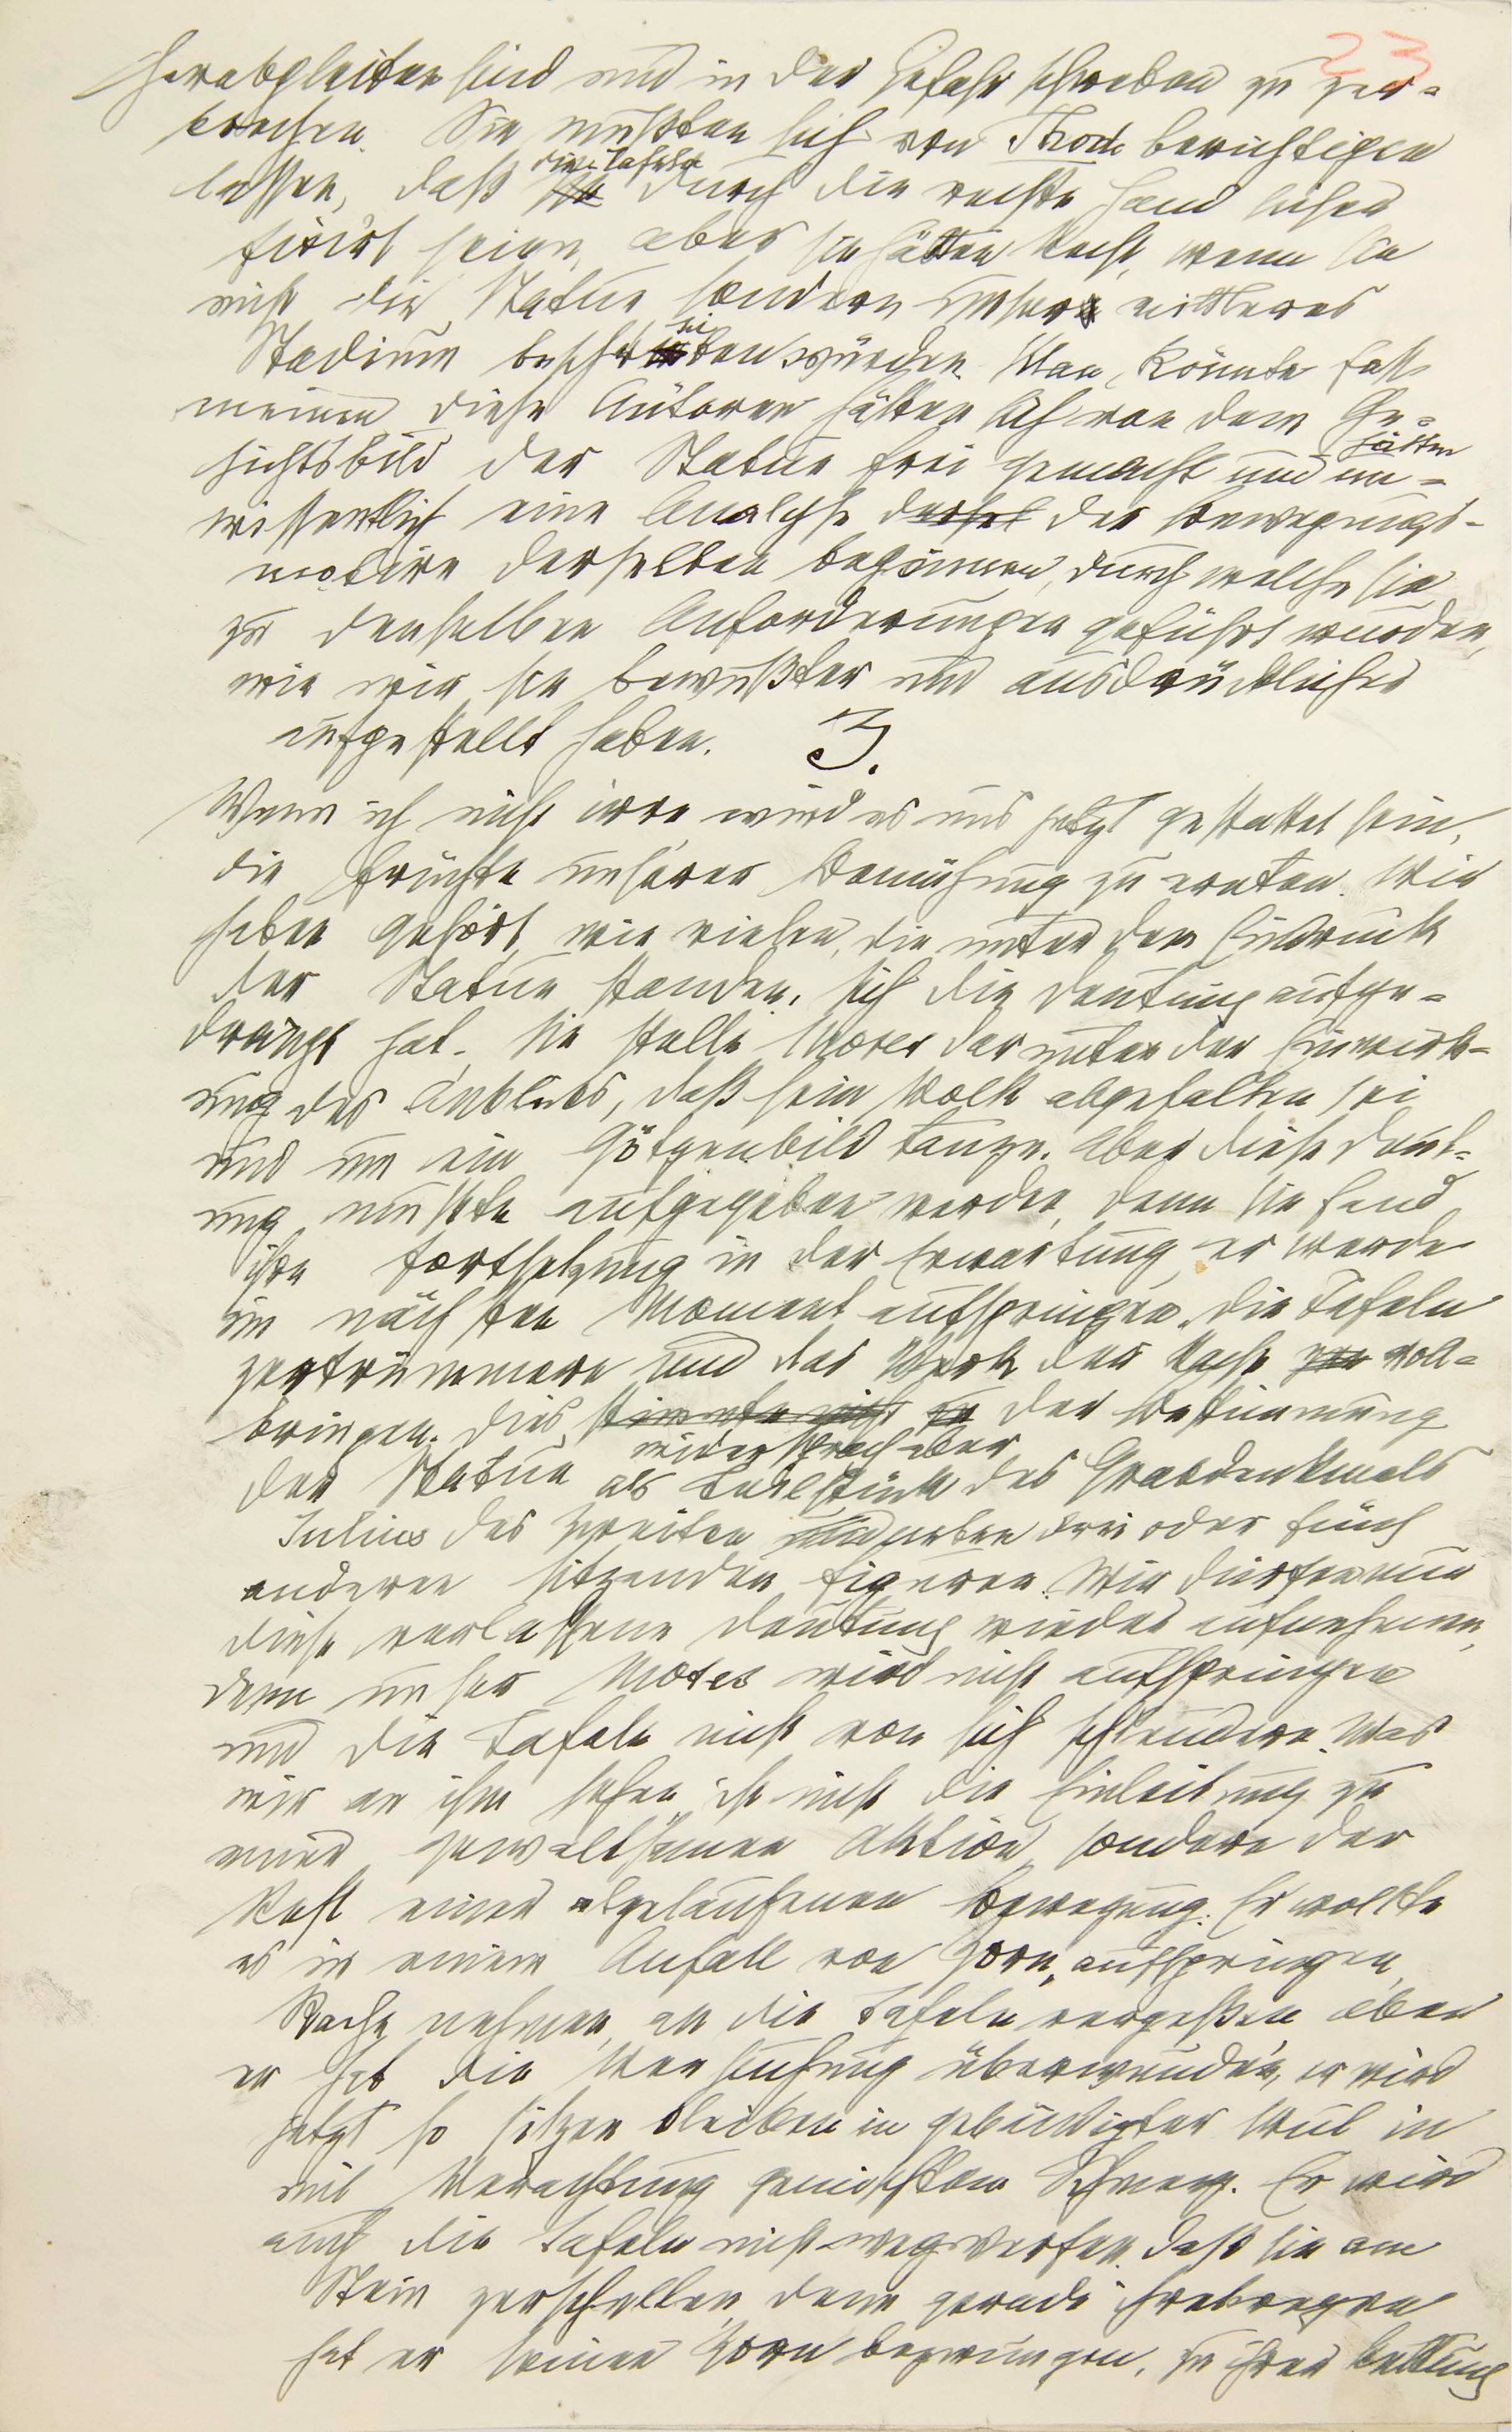 23
herabgleiten sind und in der Gefahr schweben zu zer-
brechen. Sie mußten sich von Thode berichtigen
lassen, daß sie die Tafeln durch die rechte Hand sicher
fixirt seien, aber sie hätten Recht, wenn sie
nicht die Statue sondern unser mittleres
Stadium beschreiben würden. Man könnte fast
meinen, diese Autoren hätten sich von dem Ge-
sichtsbild der Statue frei gemacht und hätten un-
wissentlich eine Analyse dersel der Bewegungs-
motive derselben begonnen, durch welche sie
zu denselben Anforderungen geführt wurden,
wie wir sie bewußter und ausdrücklicher
aufgestellt haben. 3.
Wenn ich nicht irre wird es uns jetzt gestattet sein,
die Früchte unserer Bemühung zu ernten. Wir
haben gehört, wie vielen, die unter dem Eindruck
der Statue standen, sich die Deutung aufge-
drängt hat, sie stelle Moses dar unter der Einwirk-
ung des Anblicks, daß sein Volk abgefallen sei
und um ein Götzenbild tanze. Aber diese Deut-
ung mußte aufgegeben werden, denn sie fand
ihre Fortsetzung in der Erwartung, er werde
im nächsten Moment aufspringen, die Tafeln
zertrümmern und das Werk der Rache zu voll-
bringen. Dies stimmte nicht zu widersprach aber der Bestimmung
der Statue als Teilstück des Grabdenkmals
Julius des Zweiten und neben drei oder fünf
anderen sitzenden Figuren. Wir dürfen nun
diese verlassene Deutung wieder aufnehmen,
denn unser Moses wird nicht aufspringen
und die Tafeln nicht von sich schleudern. Was
wir an ihm sehen, ist nicht die Einleitung zu
einer gewaltsamen Aktion, sondern der
Rest einer abgelaufenen Bewegung. Er wollte
es in einem Anfall von Zorn, aufspringen,
Rache nehmen, an die Tafeln vergessen, aber
er hat die Versuchung überwunden, er wird
jetzt so sitzen bleiben in gebändigter Wut in
mit Verachtung gemischtem Schmerz. Er wird
auch die Tafeln nicht wegwerfen, daß sie am
Stein zerschellen, denn gerade ihretwegen
hat er seinen Zorn bezwungen, zu ihrer Rettung